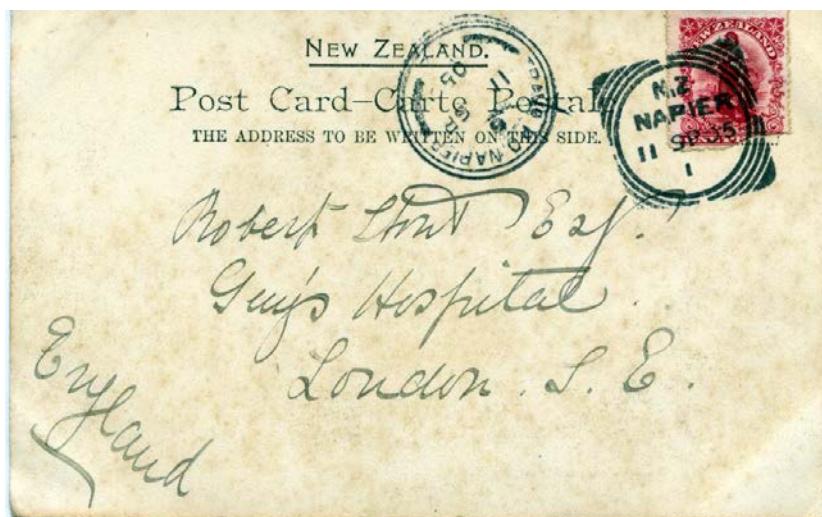 NEW ZEALAND.
Post Card—Carte Postale
THE ADDRESS TO BE WRITTEN ON THIS SIDE.
NEW ZEALAND
N.Z
NAPIER
11
35
1
NAPIER
11
05
Robert Esq.
Guy's Hospital
London. S. E.
England